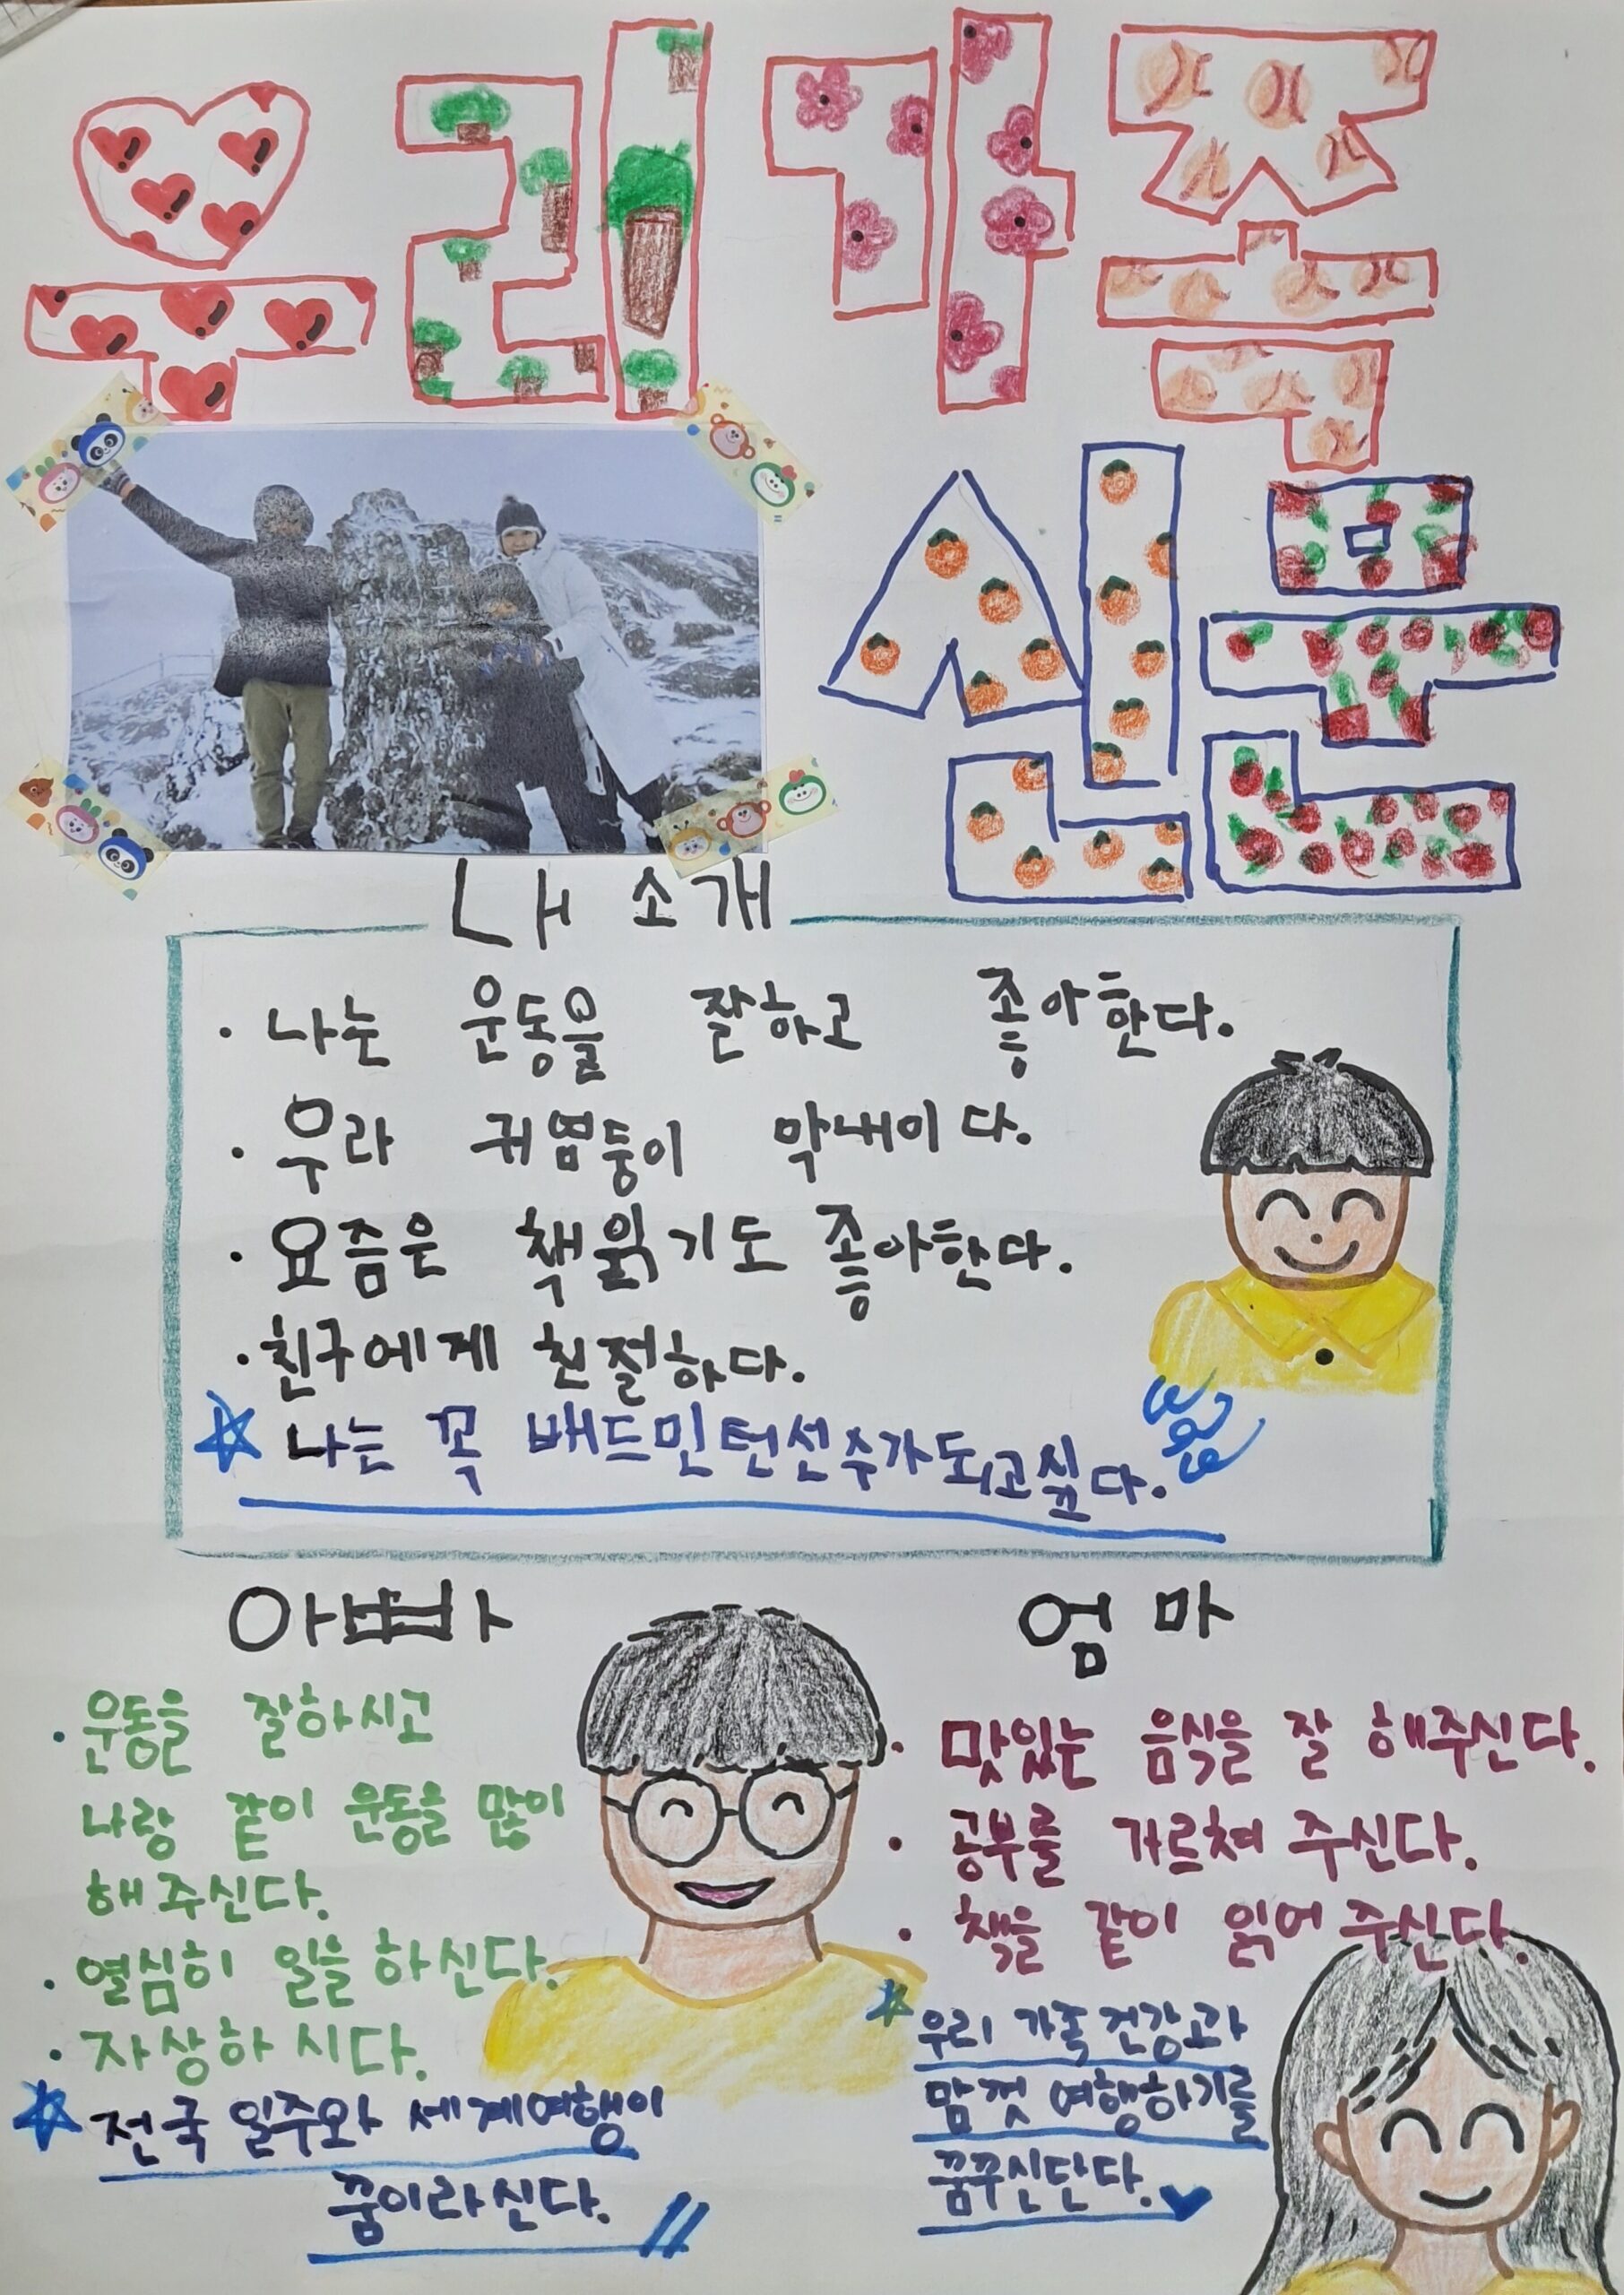 우리가족
신문
내 소개
· 나는 운동을 잘하고 좋아한다.
· 우라 귀염둥이 막내이다.
· 요즘은 책읽기도 좋아한다.
· 친구에게 친절하다.
☆ 나는 꼭 배드민턴선수가되고싶다.
아빠
· 운동을 잘하시고
나랑 같이 운동을 많이
해주신다.
· 열심히 일을 하신다.
· 자상하시다.
☆ 전국 일주와 세계여행이
꿈이라신다.
엄마
· 맛있는 음식을 잘 해주신다.
· 공부를 가르쳐 주신다.
· 책을 같이 읽어 주신다.
☆ 우리 가족 건강과
맘껏 여행하기를
꿈꾸신단다.